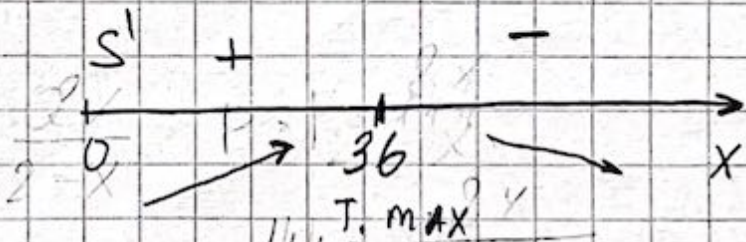 S' + −
0 36 x
т. MAX